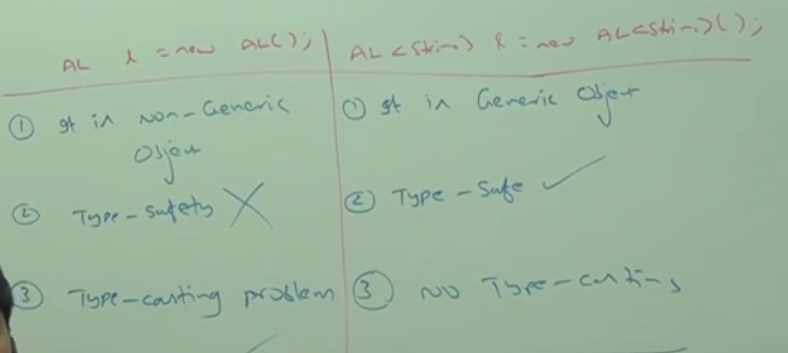 AL l = new AL();
AL<String> l = new AL<String>();
① It is Non-Generic
Object
① It is Generic Object
② Type-safety X
② Type-safe ✓
③ Type-casting problem
③ No Type-casting